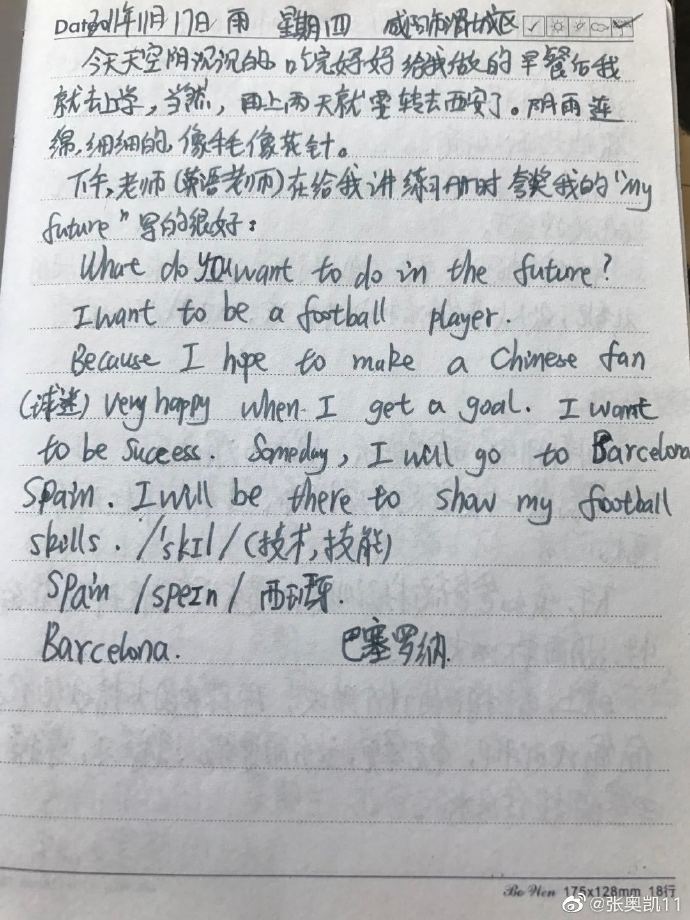 Date 2011年11月17日 雨 星期四 咸阳市渭城区
今天天空阴沉沉的 吃完好好给我做的早餐后我
就去上学,当然,再上两天就要转去西安了。阴雨连
绵,细细的,像毛像花针。
下午,老师(英语老师)在给我讲练习册时夸奖我的"my
future"写的很好:
What do you want to do in the future?
I want to be a football player.
Because I hope to make a Chinese fan
(球迷) very happy when I get a goal. I want
to be success. Someday, I will go to Barcelona
Spain. I will be there to show my football
skills. /'skIl/ (技术,技能)
Spain /speIn/ 西班牙.
Barcelona. 巴塞罗纳.
Bo Wen 175x128mm 18行
@张奥凯11